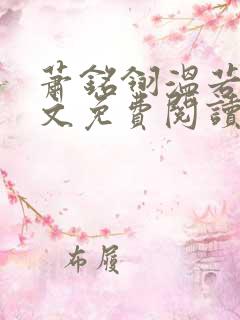 蕭銘翎溫若
文免費閱讀
布履